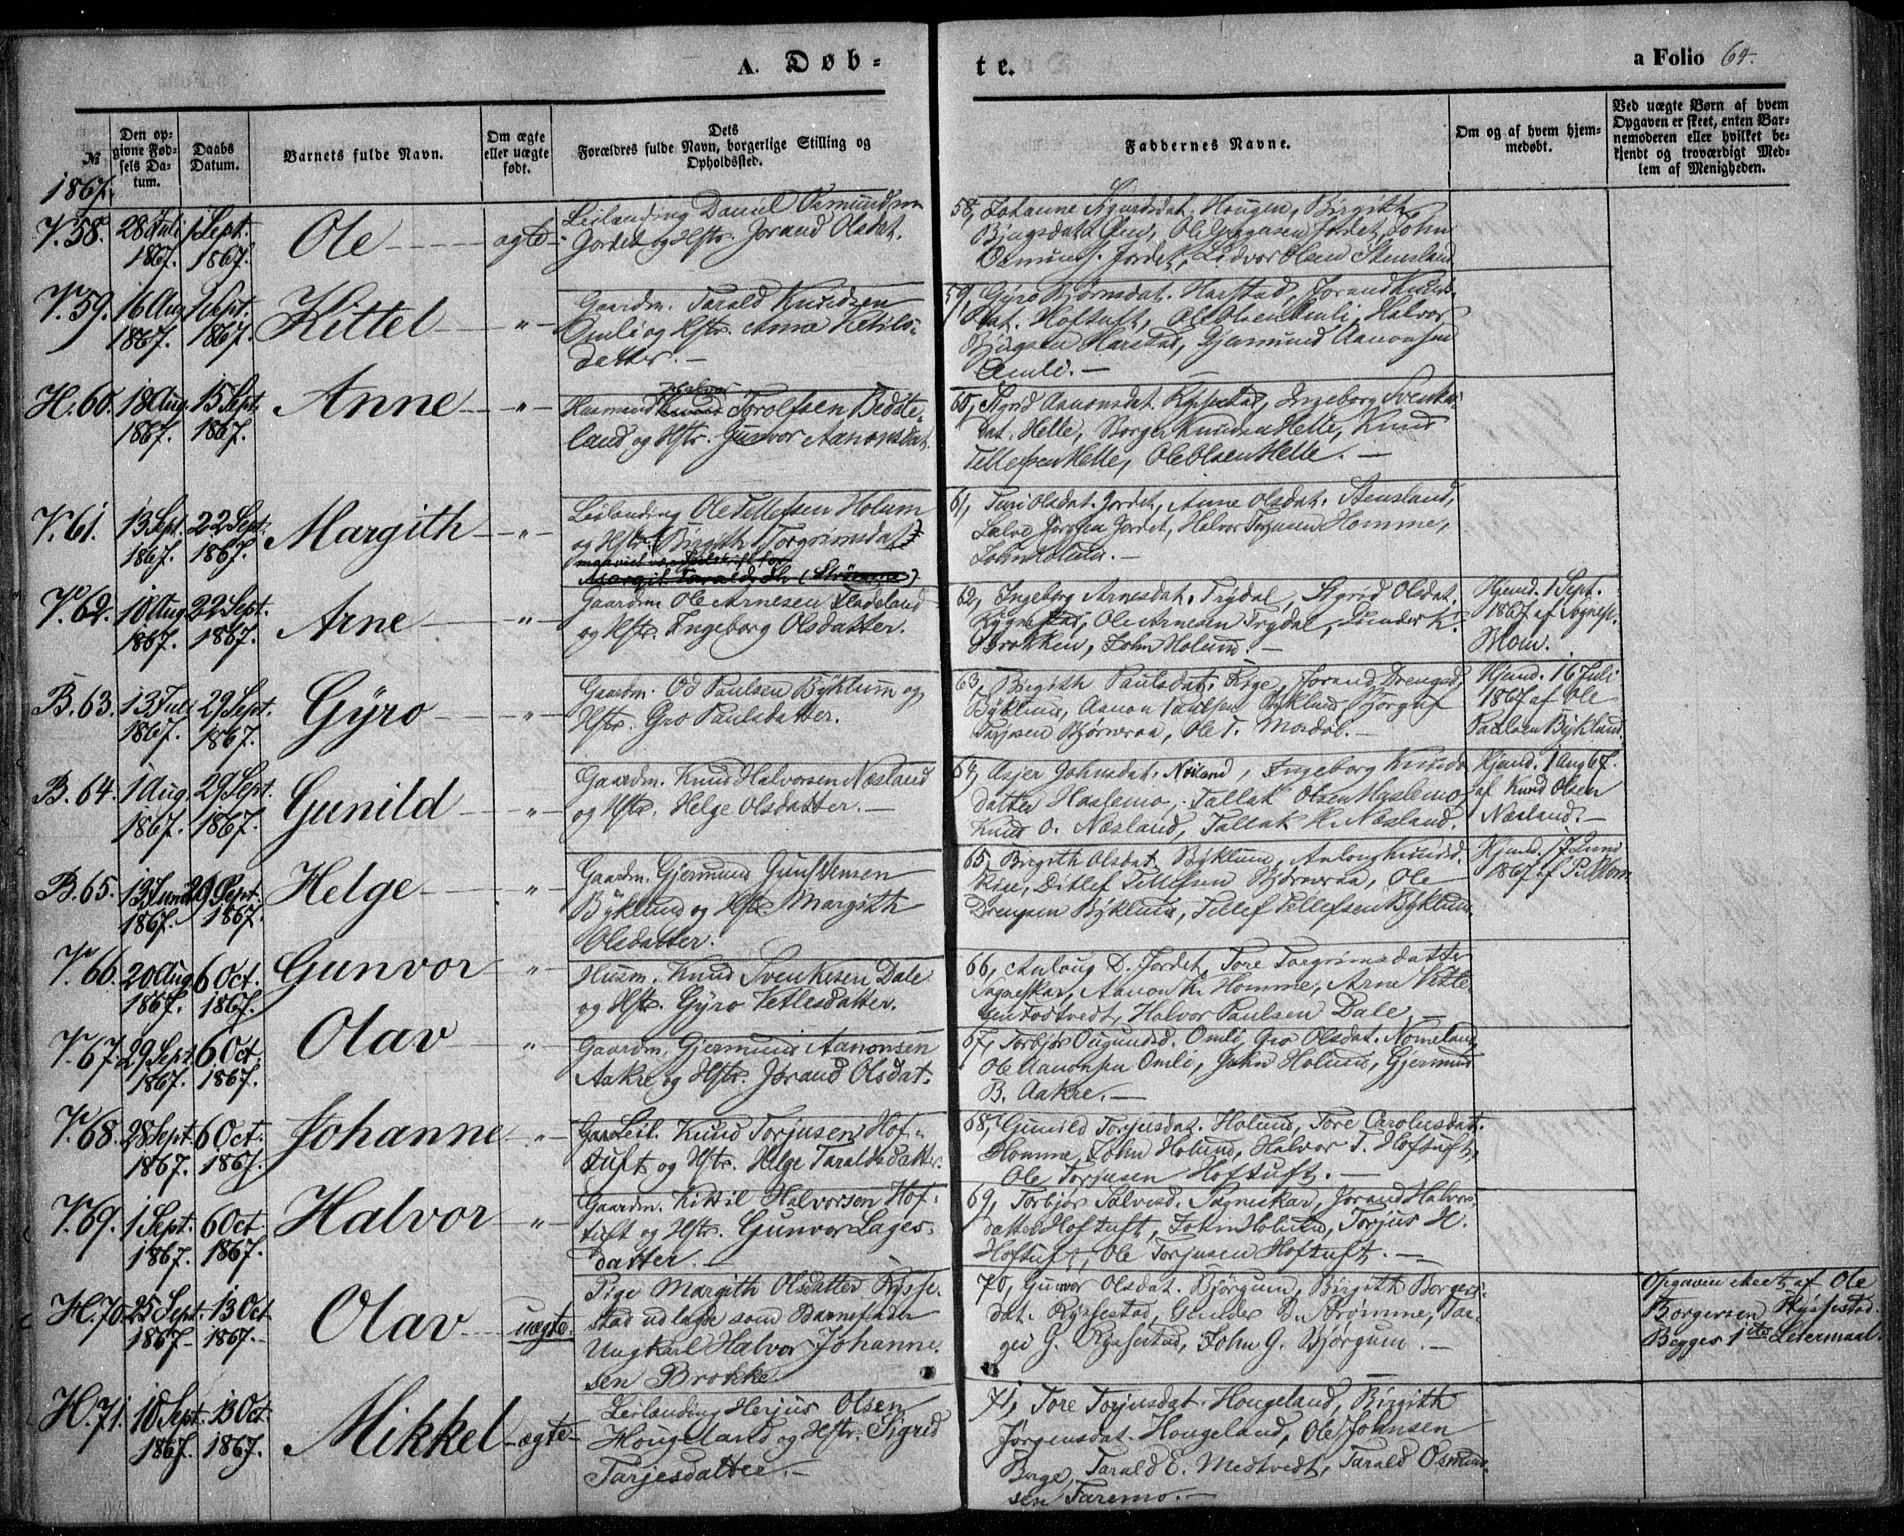 A. Døb-
te.
a Folio 64.
№
Den op-
givne Fød-
sels Da-
tum.
Daabs
Datum.
Barnets fulde Navn.
Om ægte
eller uægte
født.
Dets
Forældres fulde Navn, borgerlige Stilling og
Opholdssted.
Faddernes Navne.
Om og af hvem hjem-
medøbt.
Ved uægte Børn af hvem
Opgaven er skeet, enten Bar-
nemoderen eller hvilket be-
kjendt og troværdigt Med-
lem af Menigheden.
1867.
V. 58. 28 Juli 1 Sept.
1867. 1867.
Ole ægte
Leilænding Daniel Osmundsen
Jordet og Hstr. Jorand Olsdat.
58, Johanne Sigurdsdat. Hougen, Birgith
Jordet, John
Jordet, Lidvor Olsen Stensland
V. 59. 16 Aug 1 Sept.
1867. 1867.
Kittel "
Gaardm. Tarald Knudsen
Omli og Hstr. Anne Ketils-
datter.
59, Gyro Bjørnsdat. Harstad, Jorand Knuds-
dat. Hoftuft, Ole Olsen Omli, Halvor
Harstad, Gjermund Aanonsen
Omli.
H. 60. 18 Aug. 15 Sept.
1867. 1867.
Anne "
Halvor
Husmand Knud Torolfsen Bedste-
land og Hstr. Gunvor Aanonsdat.
60, Sigrid Aanonsdat. Rysstad, Ingeborg Svenke-
dat. Helle, Borger Knudsen Helle, Knud
Tellefsen Helle, Ole Olsen Helle.
V. 61. 13 Sept. 22 Sept.
1867. 1867.
Margith "
Leilænding Ole Tellefsen Holum
og Hstr. (Birgith Torgrimsdat.)
Margit Taraldsdtr (Strømme)
61, Turi Olsdat. Jordet, Anne Olsdat. Stensland,
Salve Jordet, Halvor Torjusen Homme,
John Holum.
V. 62. 10 Aug. 22 Sept.
1867. 1867.
Arne "
Gaardm. Ole Arnesen Fladeland
og Hstr. Ingeborg Olsdatter.
62, Ingeborg Arnesdat. Trydal, Sigrid Olsdat.
Rygnestad, Ole Arnesen Trydal, Gunder K.
Brokken, John Holum.
Hjemd. 1 Sept.
1867 af Sognepr.
Moin.
B. 63. 13 Juli 29 Sept.
1867. 1867.
Gyro "
Gaardm. Od Paulsen Byklum og
Hstr. Gro Paulsdatter.
63, Birgith Paulsdat. Rige, Jorand Drengsd.
Byklum, Aanon Paulsen Byklund, Bjørguf
Tarjesen Bjørneraa, Ole T. Mosdøl.
Hjemd. 16 Juli
1867 af Ole
Paulsen Byklund.
B. 64. 1 Aug. 29 Sept.
1867. 1867.
Gunild "
Gaardm. Knud Halvorsen Næsland
og Hstr. Helge Olsdatter.
64, Asjer Johnsdat. Næsland, Ingeborg Knuds-
datter Haslemo, Tallak Olsen Haslemo,
Knud O. Næsland, Tallak K. Næsland.
Hjemd. 1 Aug 67.
af Knud Olsen
Næsland.
B. 65. 13 Juni 29 Sept.
1867. 1867.
Helge "
Gaardm. Gjermund Gunsteinsen
Byklund og Hstr. Margith
Olsdatter.
65, Birgith Olsdat. Byklum, Anlong Knudsd.
Rige, Ditlef Tellefsen Bjørneraa, Ole
Drengsen Byklum, Tellef Tellefsen Byklum
Hjemd. 17 Juni
1867 af P. Blom.
V. 66. 20 Aug. 6 Oct.
1867. 1867.
Gunvor "
Husm. Knud Svenkesen Dale
og Hstr. Gyro Vetlesdatter.
66, Anloug D. Jordet, Tore Torgrimsdatter
Sagneskar, Aanon K. Homme, Arne Vetle-
sen Tostvedt, Halvor Paulsen Dale.
V. 67. 29 Sept. 6 Oct.
1867. 1867.
Olav "
Gaardm. Gjermund Aanonsen
Aakre og Hstr. Jorand Olsdat.
67, Torbjør Ougundsd. Omli, Gro Olsdat. Nomeland,
Ole Aanonsen Omli, John Holum, Gjermund
B. Aakre.
V. 68. 28 Sept. 6 Oct.
1867. 1867.
Johanne "
Leil. Knud Torjusen Hof-
tuft og Hstr. Helge Taraldsdatter.
68, Gunild Torjusdat. Holum, Tore Carolusdat.
Homme, John Holum, Halvor T. Hoftuft,
Ole Torjusen Hoftuft.
V. 69. 1 Sept. 6 Oct
1867. 1867.
Halvor "
Gaardm. Kittil Halvorsen Hof-
tuft og Hstr. Gunvor Lages-
datter.
69, Torbjør Salvesd. Sagneskar, Jorand Halvors-
datter Hoftuft, John Holum, Torjus H.
Hoftuft, Ole Torjusen Hoftuft.
H. 70. 25 Sept. 13 Oct
1867. 1867.
Olav uægte.
Pige Margith Olsdatter Rysse-
stad udlagde som Barnefader
Ungkarl Halvor Johanne-
sen Brokke.
70, Gunvor Olsdat. Bjørgum, Birgith Borgers-
dat. Ryssestad, Gunder B. Strømme, Tar-
gei G. Ryssestad, John G. Bjørgum.
Opgaven skeet af Ole
Borgersen Ryssestad.
Begges 1ste Leiermaal.
H. 71. 10 Sept. 13 Oct.
1867. 1867.
Mikkel ægte
Leilænding Herjus Olsen
Hougeland og Hstr. Sigrid
Tarjesdatter.
71, Tore Torjusdat. Hougeland, Birgith
Jørgensdat. Hougeland, Ole Johnsen
Berge, Tarald E. Medtvedt, Tarald Osmund-
sen Faremo.